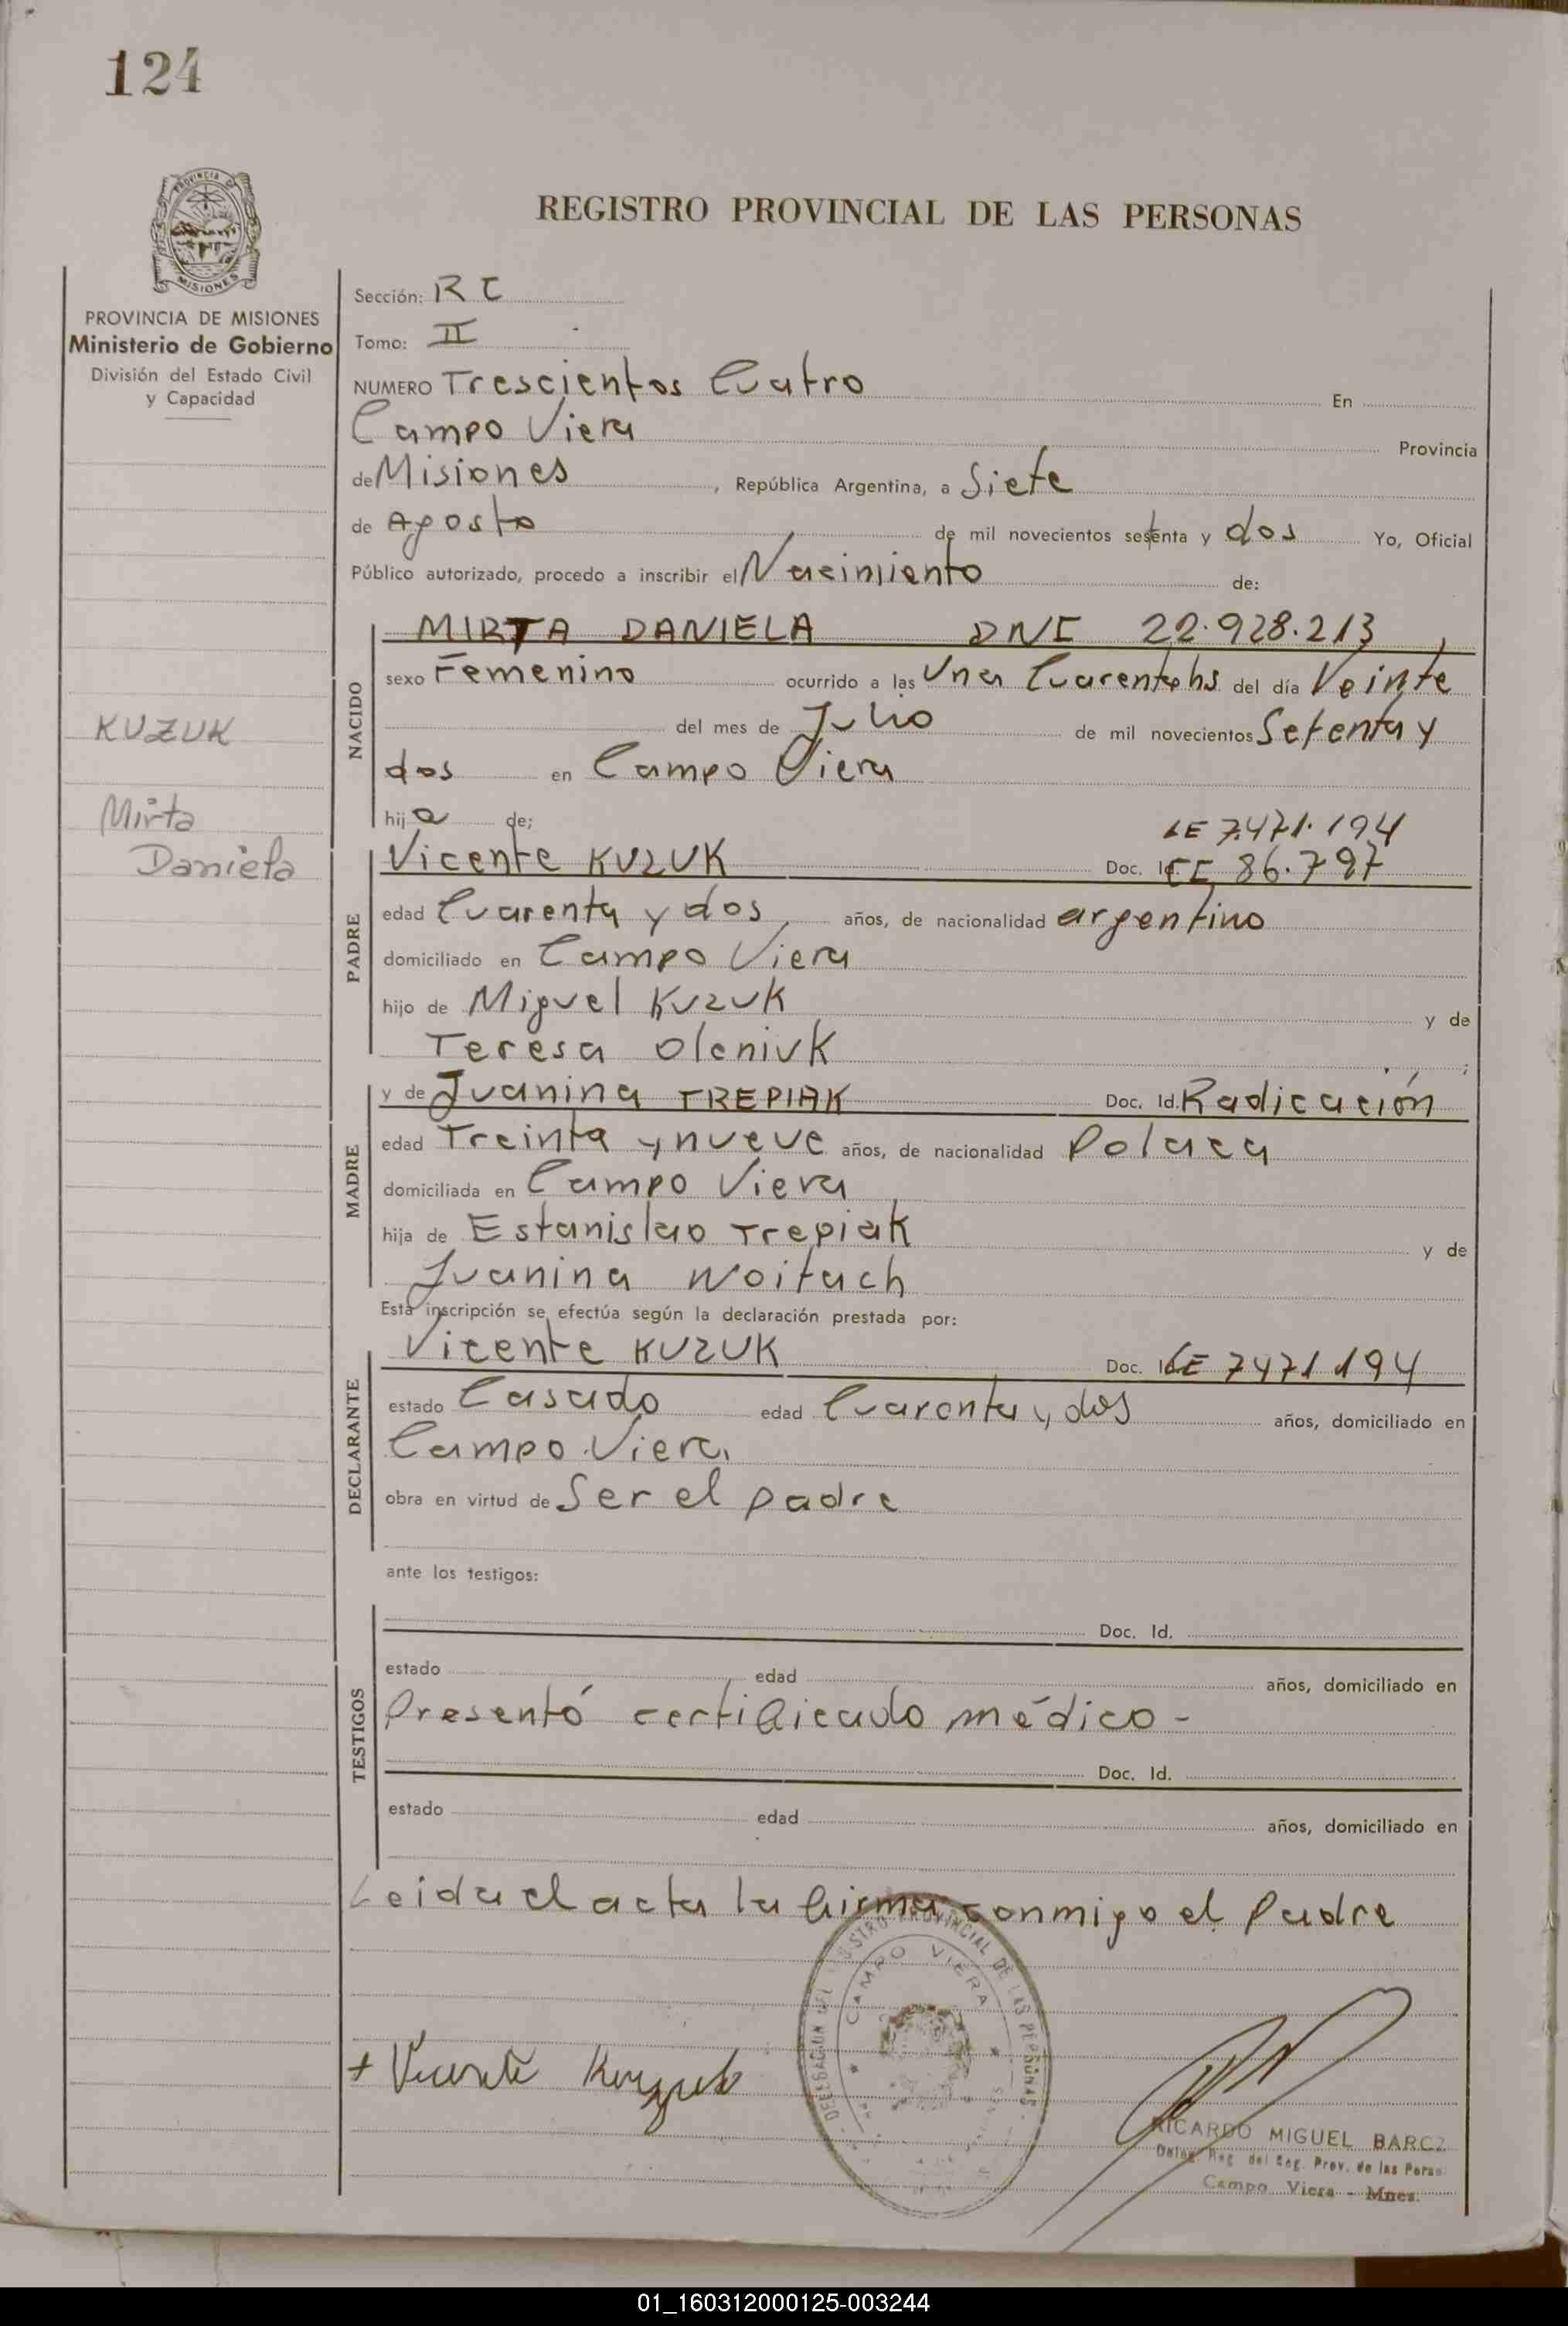 124
PROVINCIA DE
MISIONES
REGISTRO PROVINCIAL DE LAS PERSONAS
PROVINCIA DE MISIONES
Ministerio de Gobierno
División del Estado Civil
y Capacidad
KUZUK
Mirta
Daniela
Sección: RC
Tomo: II
NUMERO Trescientos Cuatro En
Campo Viera Provincia
de Misiones, República Argentina, a Siete
de Agosto de mil novecientos setenta y dos Yo, Oficial
Público autorizado, procedo a inscribir el Nacimiento de:
NACIDO
MIRTA DANIELA DNI 22.928.213,
sexo Femenino ocurrido a las Una Cuarenta hs del día Veinte
del mes de Julio de mil novecientos Setenta y
dos en Campo Viera
hija de;
LE 7.471.194
PADRE
Vicente KUZUK Doc. Id. CI 86.797
edad Cuarenta y dos años, de nacionalidad argentino
domiciliado en Campo Viera
hijo de Miguel KUZUK y de
Teresa Oleniuk;
MADRE
y de Juanina TREPIAK Doc. Id. Radicación
edad Treinta y nueve años, de nacionalidad Polaca
domiciliada en Campo Viera
hija de Estanislao Trepiak y de
Juanina Woitach
Esta inscripción se efectúa según la declaración prestada por:
DECLARANTE
Vicente KUZUK Doc. Id. LE 7471194
estado Casado edad Cuarenta y dos años, domiciliado en
Campo Viera
obra en virtud de Ser el padre
ante los testigos:
TESTIGOS
Doc. Id.
estado edad años, domiciliado en
Presentó certificado médico -
Doc. Id.
estado edad años, domiciliado en
Leida el acta la firma conmigo el Padre
DELEGACION DEL REGISTRO PROVINCIAL DE LAS PERSONAS
CAMPO VIERA
+ Vicente Kuzuk
RICARDO MIGUEL BARCZ
Deleg. Reg. del Reg. Prov. de las Perso
Campo Viera - Mnes.
01_160312000125-003244